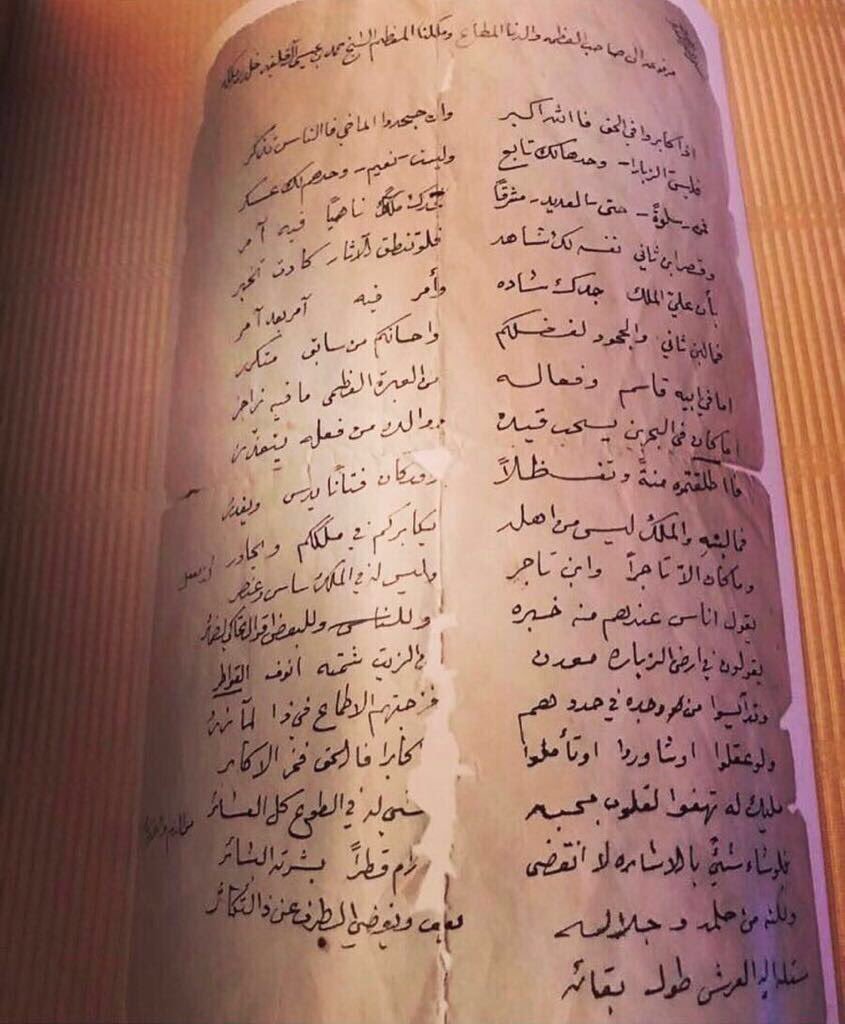 مرفوعه الى صاحب العظمه والدنا المطاع وملكنا المعظم الشيخ حمد بن عيسى آل خليفه
اذا كابروا في الحق فا الله اكبر وان جحدوا الماضي فا الناس تذكر
فليس الزباره وحدها لك تابع وليست نعيم وحدهم لك عسكر
فمن سلوةً حتى العديد مشرقاً ملكاً ناهياً فيه آمر
وقصر ابن ثاني نفسه لك شاهد فلو تنطق الآثار كادت تخبر
بأن علي الملك جدك شاده وأمر فيه آمر بعد آمر
فمالبن ثاني والجحود لفضلكم واحسانكم من سابق متكرر
اما في ابيه قاسم وفعاله من العبرة العظمى ما فيه زاجر
اما كان في البحرين يسحب قيده ووالده من فعله يتعذر
فااطلقتموه منةً وتفضلاً وقد كان فتانًا يدس ويغدر
فمالبنه والملك ليس من اهله يكابركم في ملككم ويجادر
وما كان الا تاجراً وابن تاجر وليس له في الملك ساس وعنصر
يقول اناس عندهم منه خبره وللناس وللبعض اقوال
يقولون في ارض الزباره معدن من الزيت شمته انوف القواطر
وقد آيسوا من وجده في حدودهم فزجتهم الاطماع في ذا
ولو عقلوا اوشاوروا اوتأملوا فا الحق فخر الاكابر
مليك له تهفوا لقلوب محبه له في الطوع كل العشائر
فلو شاء شيئٍ با الاشاره لانقضى رام قطراً بشرته البشائر
ولكنه من حلمه وجلاله يعف ويغضي الطرف عن ذا التكاثر
العرش طول بقائه